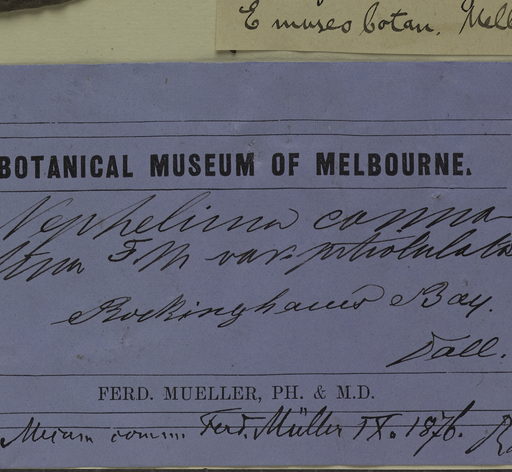 E museo botan. Melb
BOTANICAL MUSEUM OF MELBOURNE.
Nephelium conna-
tum F M var. petiolulata
Rockinghams Bay.
Dall.
FERD. MUELLER, PH. & M.D.
Mecum comm. Ferd. Müller IX. 1876.